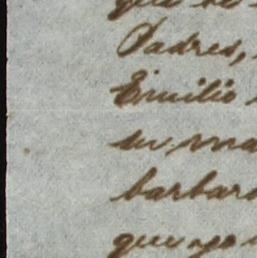 que se
Padres,
Emilio
su ma
barbar
que yo